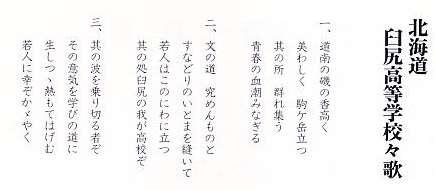 北海道
臼尻高等学校々歌
一、道南の磯の香高く
美わしく 駒ケ岳立つ
其の所 群れ集う
青春の血潮みなぎる
二、文の道 究めんものと
すなどりのいとまを縫いて
若人はこのにわに立つ
其の処臼尻の我が高校ぞ
三、其の波を乗り切る者ぞ
その意気を学びの道に
生しつゝ熱もてはげむ
若人に幸ぞかゞやく